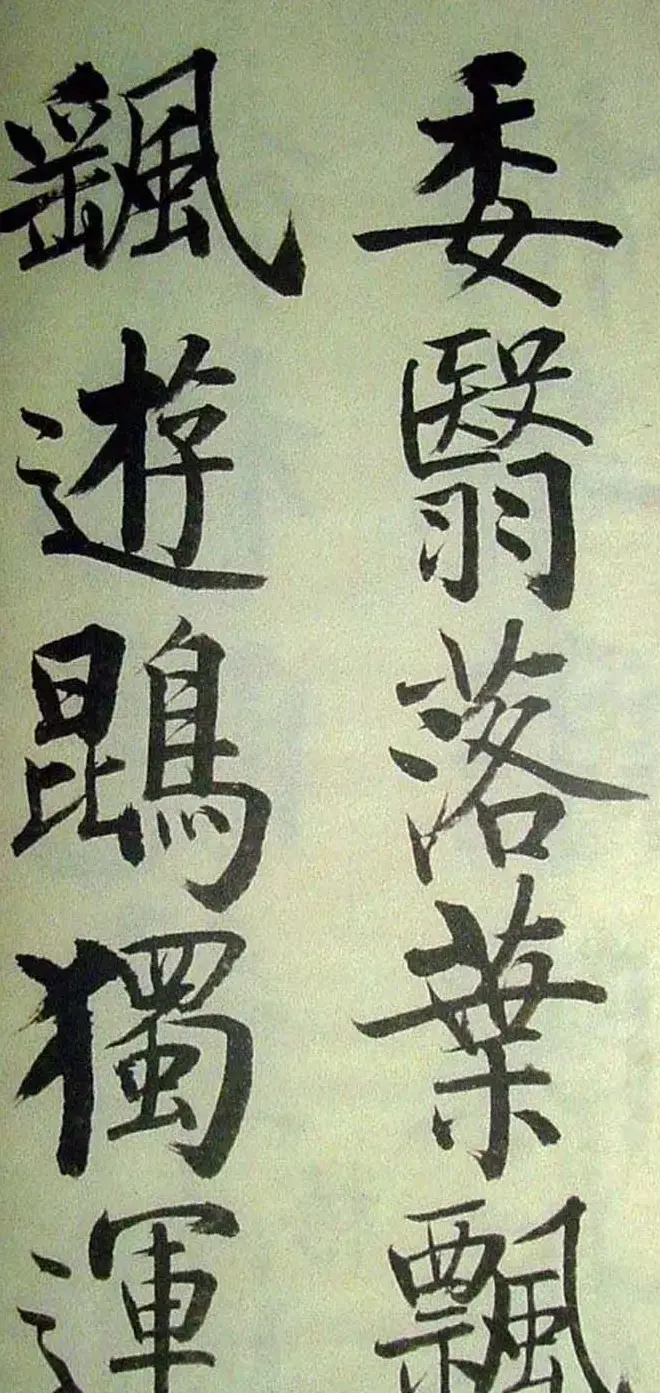 委翳落葉飄
颻遊鵾獨運